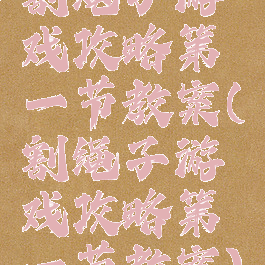 割绳子游
戏攻略第
一节教案(
割绳子游
戏攻略第
一节教案)